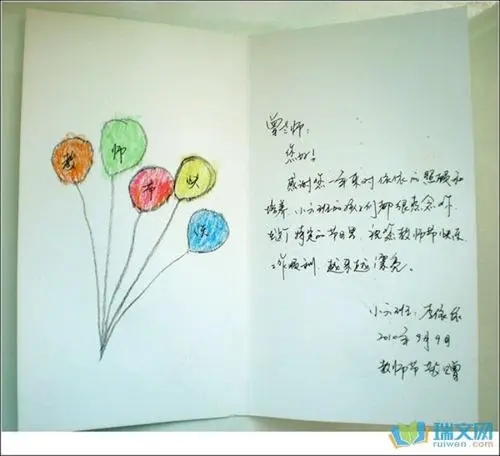 教 师 节
曾老师：
您好！
感谢您一年来对依依的照顾和
培养。小六班的孩子们都很想念你。
特定的节日里，祝您教师节快乐
工作顺利，越来越漂亮。
小六班：李依依
2010年9月9日
教师节敬赠
瑞文网
ruiwen.com